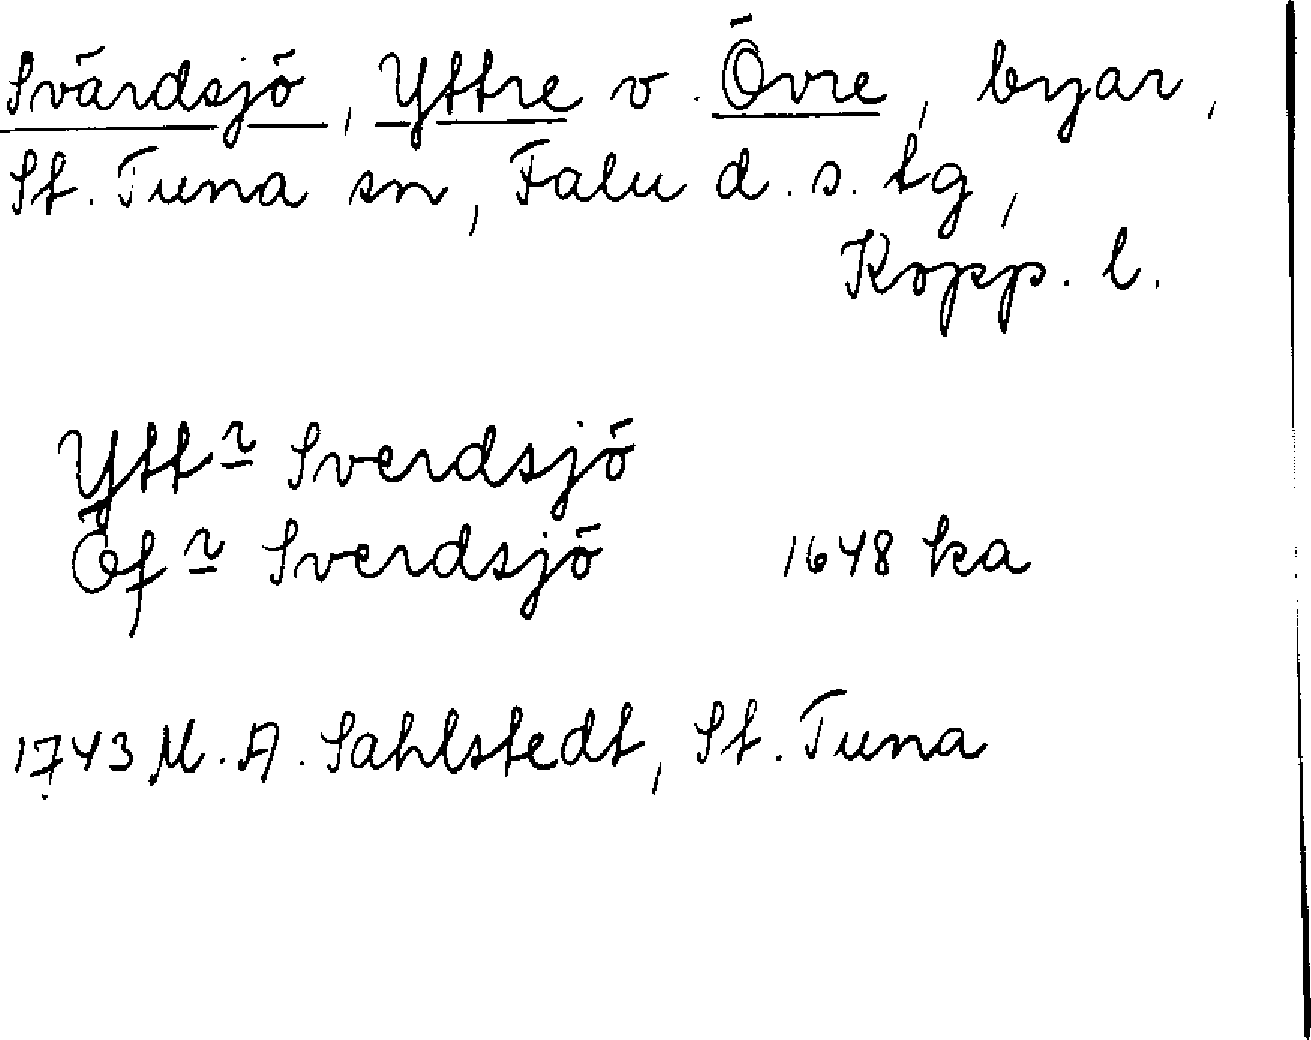 Svärdsjö, Yttre o. Övre, byar,
St. Tuna sn, Falu d. s. tg,
Kopp. l.
Yttr Sverdsjö
Öfr Sverdsjö 1648 ka
1743 M. A. Sahlstedt, St. Tuna